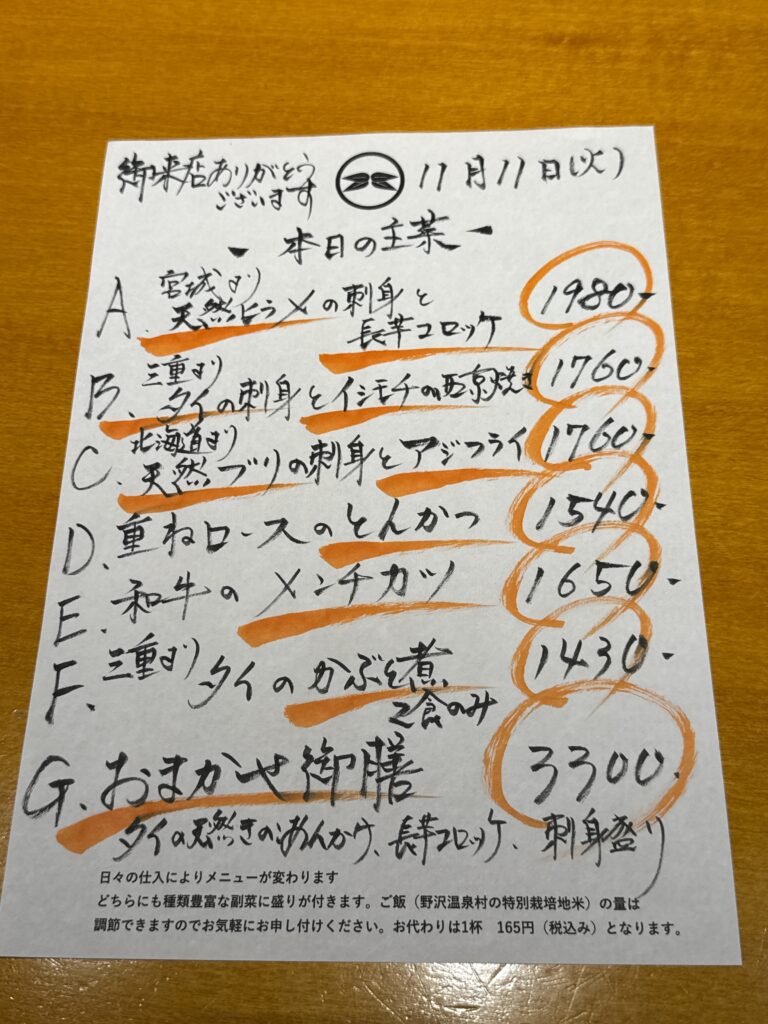 御来店ありがとう
ございます
11月11日(火)
- 本日の主菜 -
A. 宮城より
天然ヒラメの刺身と
長芋コロッケ
1980-
B. 三重より
タイの刺身とイシモチの西京焼き
1760-
C. 北海道より
天然ブリの刺身とアジフライ
1760-
D. 重ねロースのとんかつ
1540-
E. 和牛のメンチカツ
1650-
F. 三重より
タイのかぶと煮
2食のみ
1430-
G. おまかせ御膳
3300-
タイの天然きのこあんかけ、長芋コロッケ、刺身盛り
日々の仕入によりメニューが変わります
どちらにも種類豊富な副菜に盛りが付きます。ご飯（野沢温泉村の特別栽培地米）の量は
調節できますのでお気軽にお申し付けください。お代わりは1杯　165円（税込み）となります。